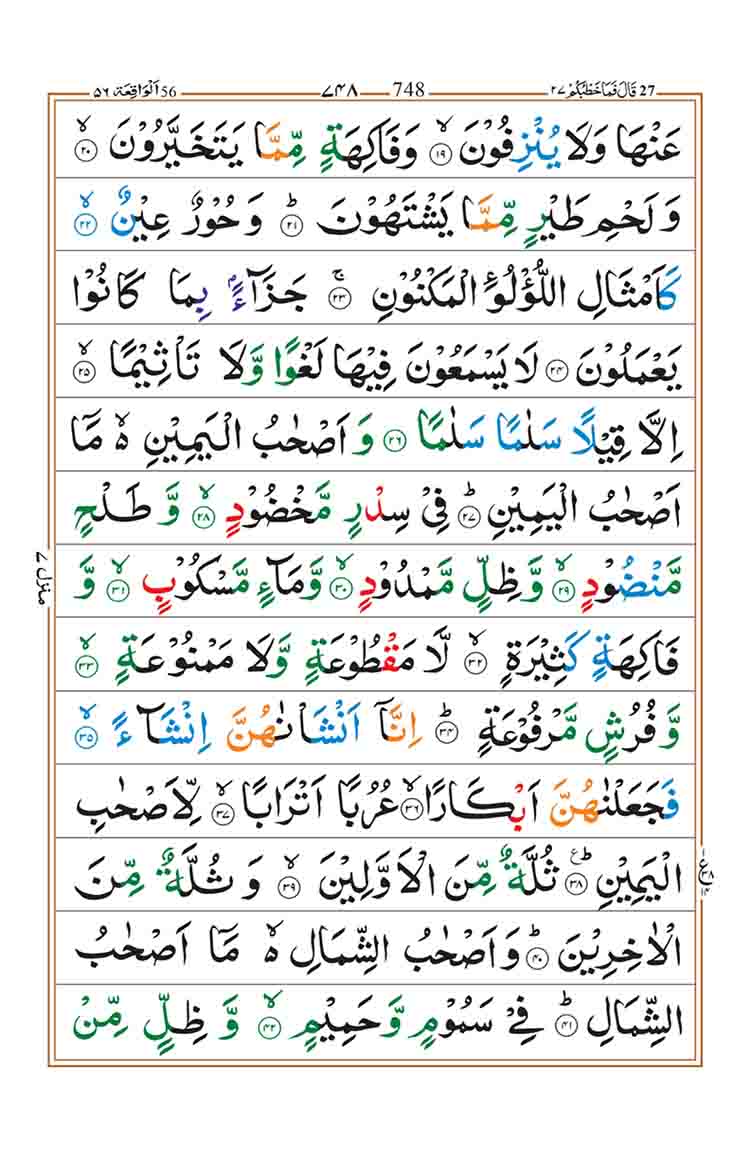 27 قَالَ فَمَا خَطْبُكُمْ ٢٧ 748 ٧٤٨ 56 اَلْوَاقِعَة ٥٦
عَنْهَا وَلَا يُنْزِفُوْنَ ۙ‏﴿۱۹﴾ وَفَاكِهَةٍ مِّمَّا يَتَخَيَّرُوْنَ ۙ‏﴿۲۰﴾
وَلَحْمِ طَيْرٍ مِّمَّا يَشْتَهُوْنَ ؕ‏﴿۲۱﴾ وَحُوْرٌ عِيْنٌ ۙ‏﴿۲۲﴾
كَاَمْثَالِ اللُّؤْلُوٴِ الْمَكْنُوْنِ ۚ‏﴿۲۳﴾ جَزَآءًۢ بِمَا كَانُوْا
يَعْمَلُوْنَ ‏﴿۲۴﴾ لَا يَسْمَعُوْنَ فِيْهَا لَغْوًا وَّلَا تَاْثِيْمًا ۙ‏﴿۲۵﴾
اِلَّا قِيْلًا سَلٰمًا سَلٰمًا ‏﴿۲۶﴾ وَاَصْحٰبُ الْيَمِيْنِ ۙ۬ مَاۤ
اَصْحٰبُ الْيَمِيْنِ ؕ‏﴿۲۷﴾ فِىْ سِدْرٍ مَّخْضُوْدٍ ۙ‏﴿۲۸﴾ وَّطَلْحٍ
مَّنْضُوْدٍ ۙ‏﴿۲۹﴾ وَّظِلٍّ مَّمْدُوْدٍ ۙ‏﴿۳۰﴾ وَّمَآءٍ مَّسْكُوْبٍ ۙ‏﴿۳۱﴾ وَّ
فَاكِهَةٍ كَثِيْرَةٍ ۙ‏﴿۳۲﴾ لَّا مَقْطُوْعَةٍ وَّلَا مَمْنُوْعَةٍ ۙ‏﴿۳۳﴾
وَّفُرُشٍ مَّرْفُوْعَةٍ ؕ‏﴿۳۴﴾ اِنَّاۤ اَنْشَاْنٰهُنَّ اِنْشَآءً ۙ‏﴿۳۵﴾
فَجَعَلْنٰهُنَّ اَبْكَارًا ۙ‏﴿۳۶﴾ عُرُبًا اَتْرَابًا ۙ‏﴿۳۷﴾ لِّاَصْحٰبِ
الْيَمِيْنِ ؕ‏﴿۳۸﴾ ثُلَّةٌ مِّنَ الْاَوَّلِيْنَ ۙ‏﴿۳۹﴾ وَثُلَّةٌ مِّنَ
الْاٰخِرِيْنَ ؕ‏﴿۴۰﴾ وَاَصْحٰبُ الشِّمَالِ ۙ۬ مَاۤ اَصْحٰبُ
الشِّمَالِ ؕ‏﴿۴۱﴾ فِىْ سَمُوْمٍ وَّحَمِيْمٍ ۙ‏﴿۴۲﴾ وَّظِلٍّ مِّنْ
منزل ٧